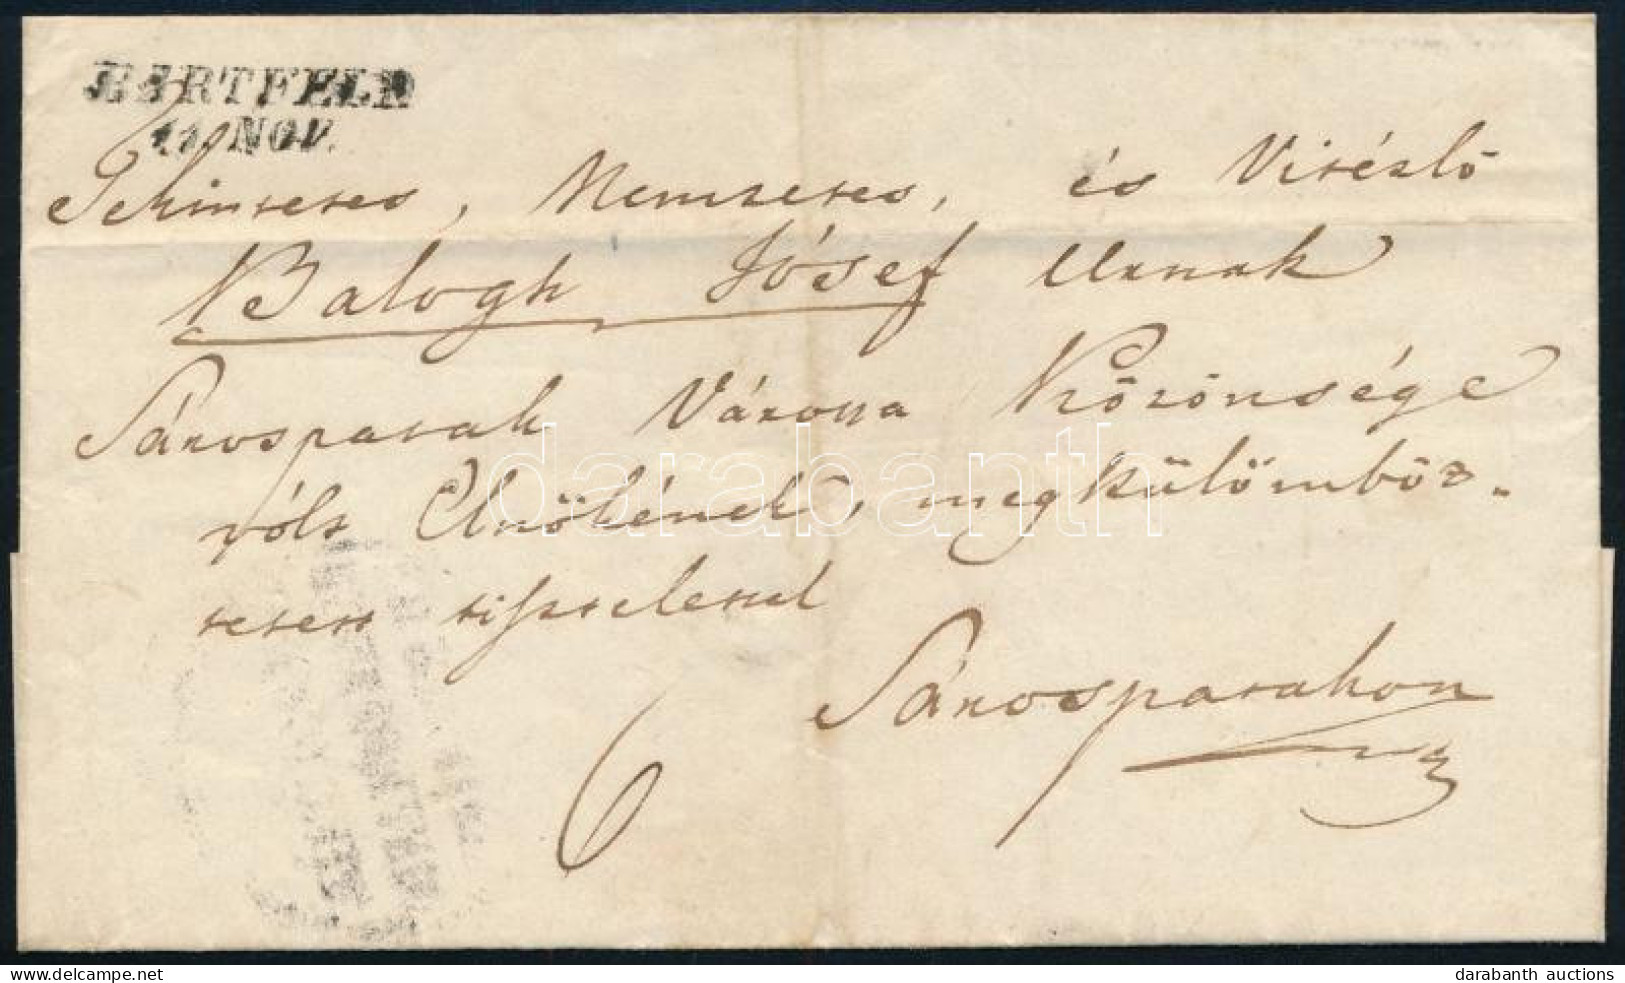 BARTFELD
11. NOV.
Tekintetes, Nemzetes, és Vitézlő
Balogh Jósef Urnak
Sárospatak Várossa Közönsége
vólt Elnökének, megkülömböz-
tetett tisztelettel
Sárospatakon
6
darabanth
www.delcampe.net
darabanth auctions